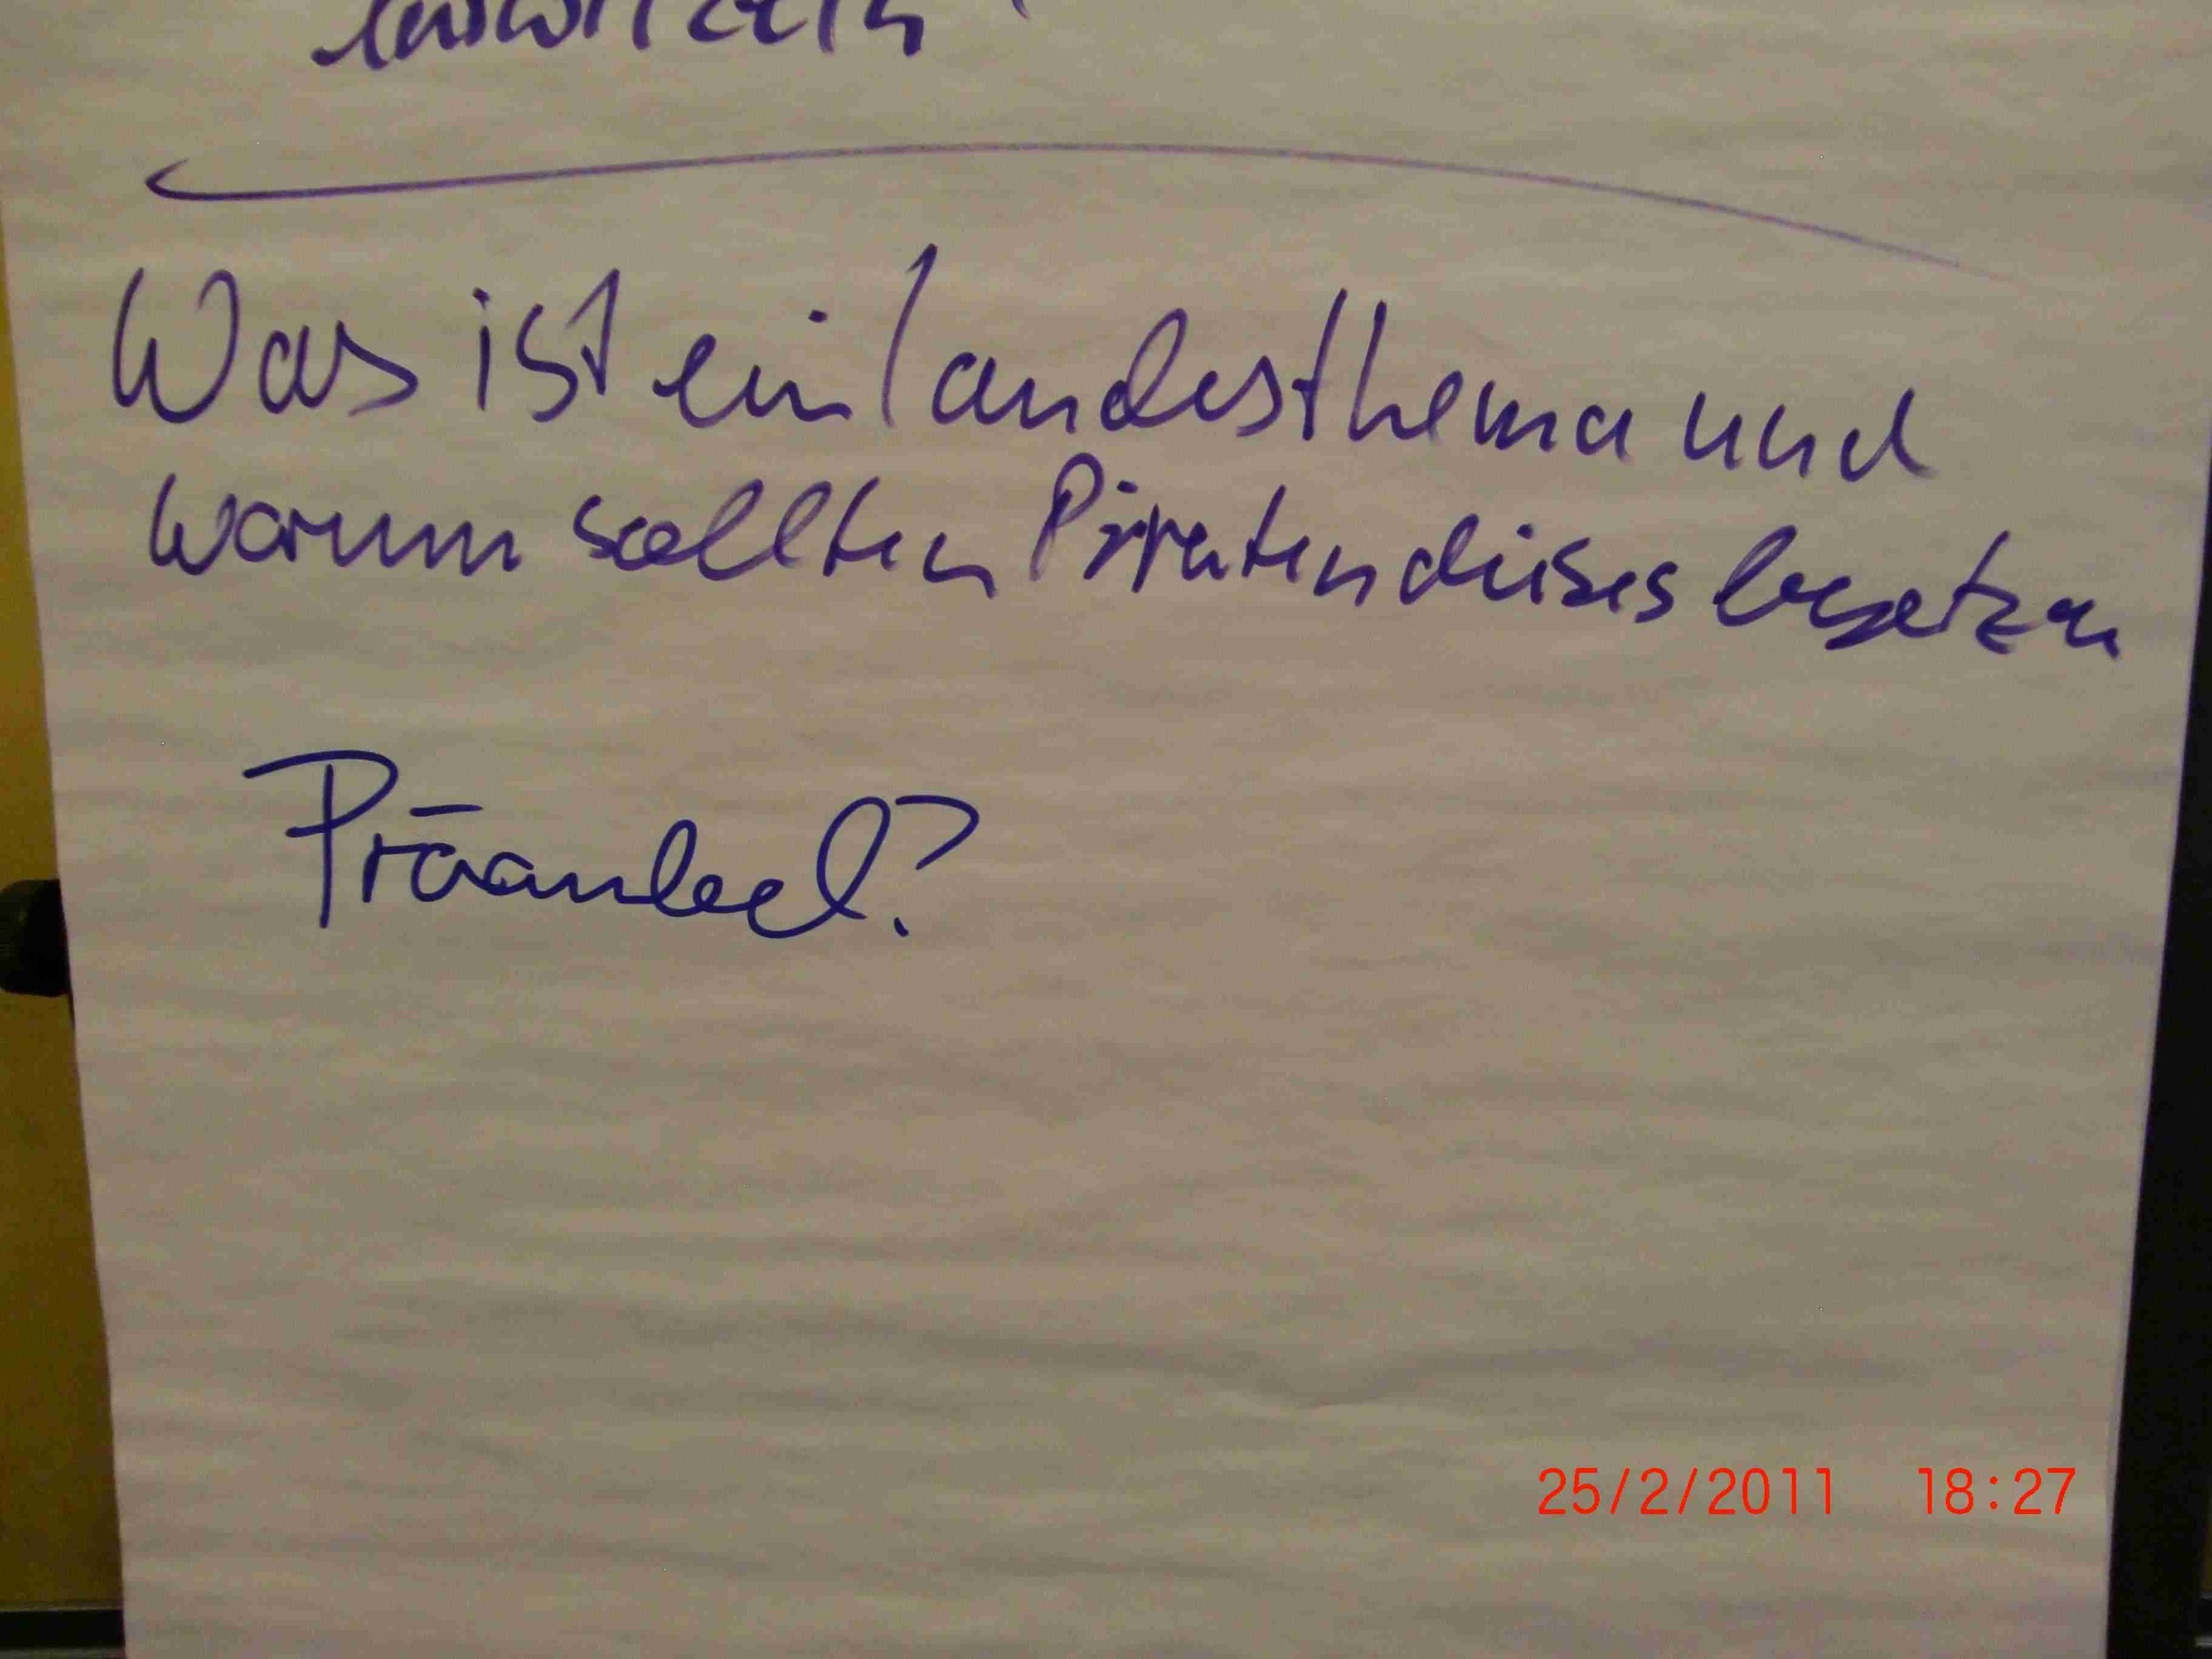 Was ist ein Landesthema und
warum sollten Piraten dieses besetzen
Präambel?
25/2/2011 18:27